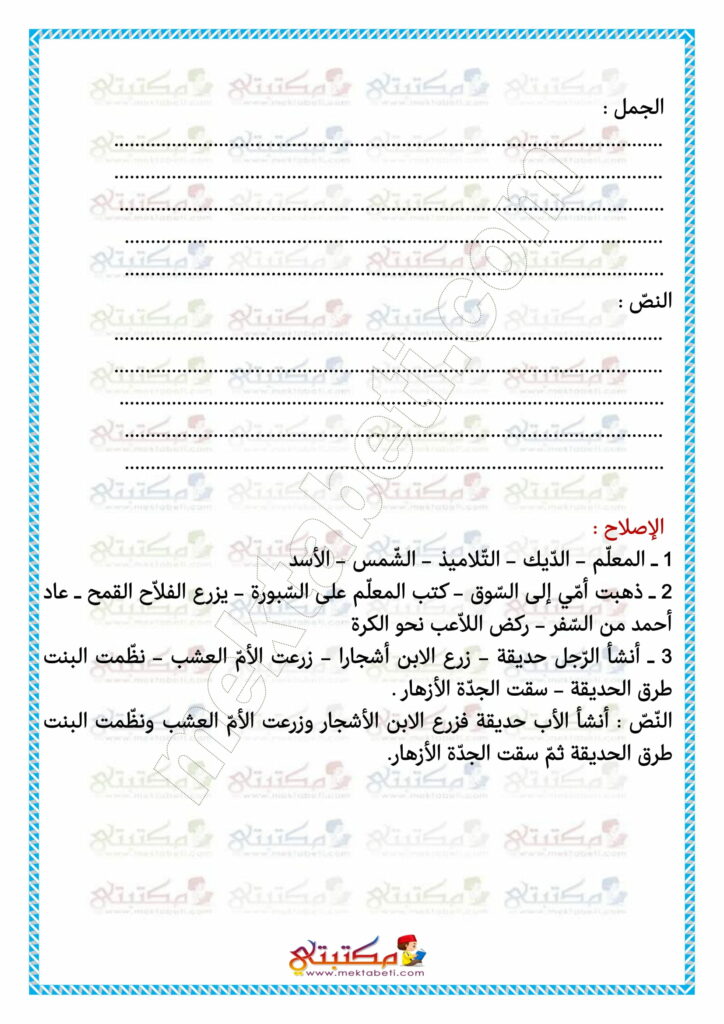 الجمل :
..........................................................................................
..........................................................................................
..........................................................................................
..........................................................................................
..........................................................................................
النصّ :
..........................................................................................
..........................................................................................
..........................................................................................
..........................................................................................
..........................................................................................
الإصلاح :
1 ـ المعلّم – الدّيك – التّلاميذ – الشّمس – الأسد
2 ـ ذهبت أمّي إلى السّوق – كتب المعلّم على السّبورة – يزرع الفلاّح القمح ـ عاد
أحمد من السّفر – ركض اللاّعب نحو الكرة
3 ـ أنشأ الرّجل حديقة – زرع الابن أشجارا – زرعت الأمّ العشب – نظّمت البنت
طرق الحديقة – سقت الجدّة الأزهار .
النّصّ : أنشأ الأب حديقة فزرع الابن الأشجار وزرعت الأمّ العشب ونظّمت البنت
طرق الحديقة ثمّ سقت الجدّة الأزهار.
mektabeti.com
مكتبتي
www.mektabeti.com